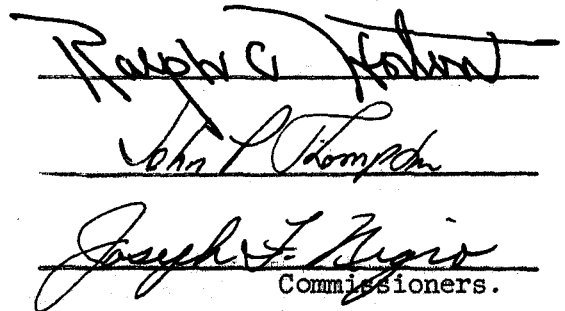 Ralph C
John P Thompson
Joseph F. Negro
Commissioners.